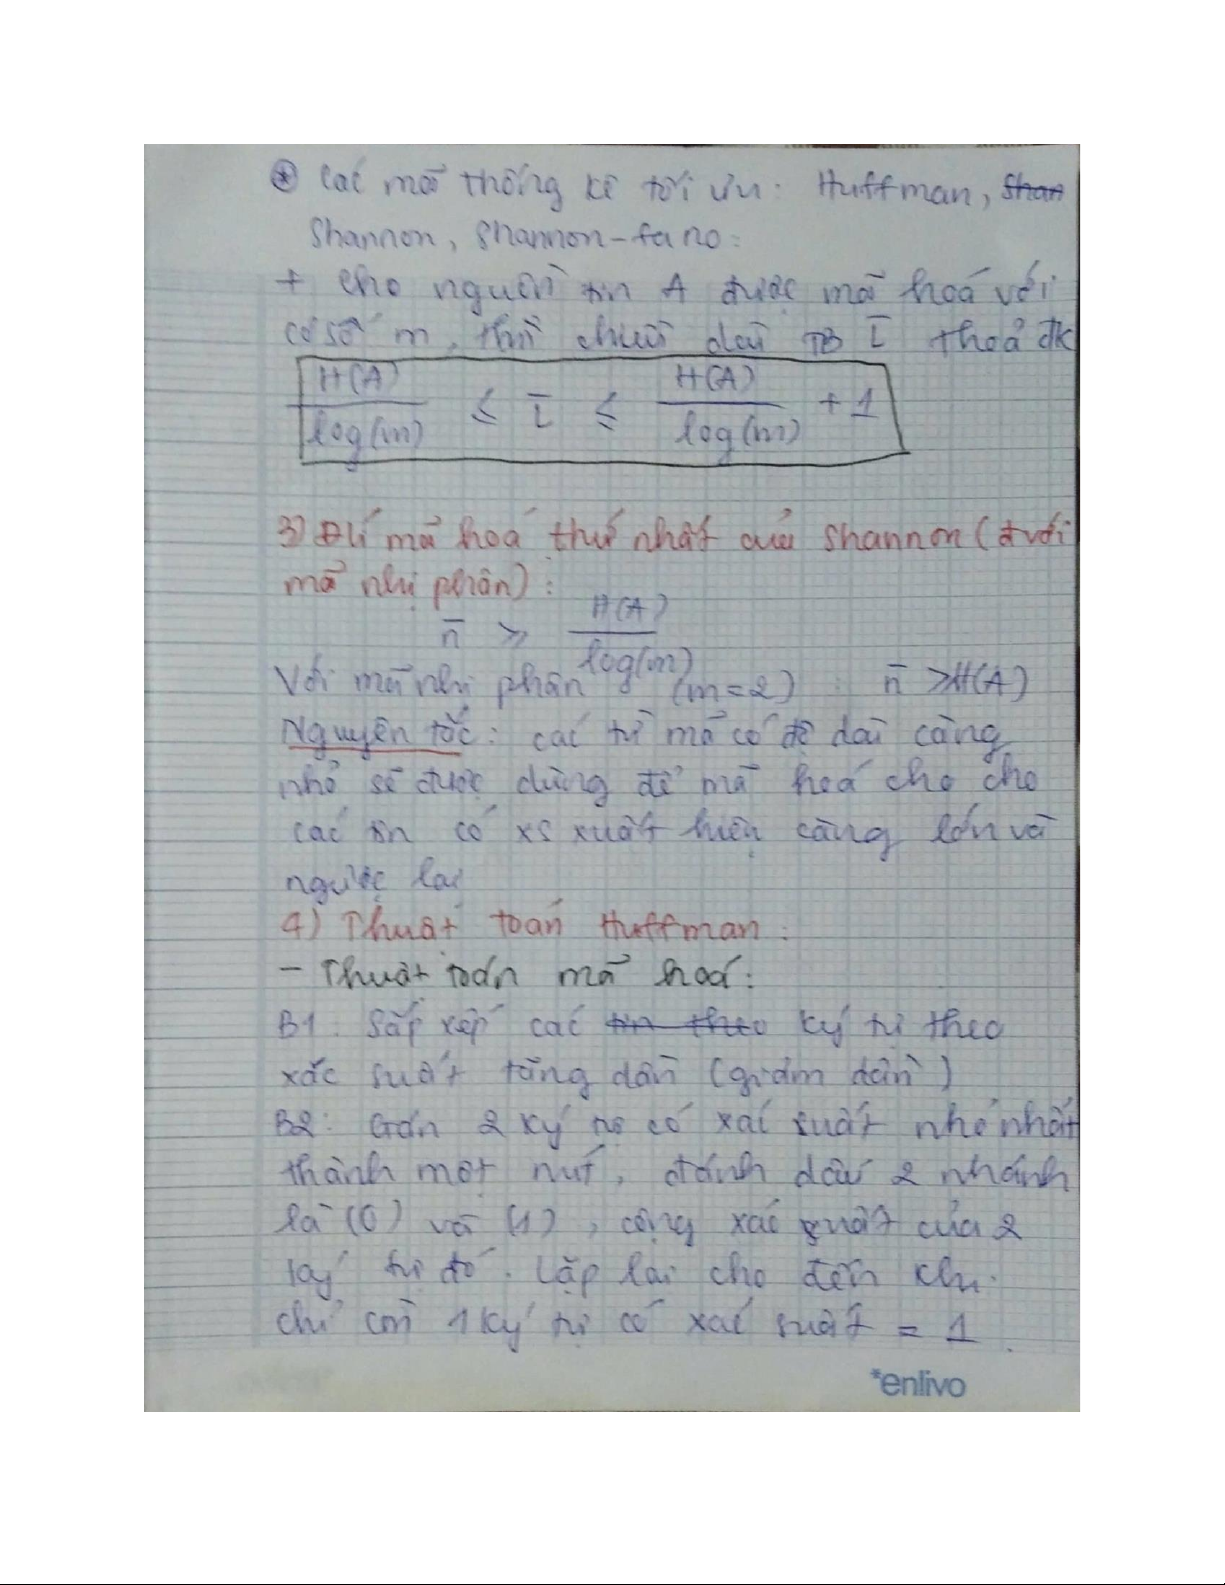 ⊛ Các mã thống kê tối ưu: Huffman, Shan
Shannon, Shannon-fano:
+ cho nguồn tin A được mã hoá với
cơ số m, thì chiều dài TB l̄ thoả đk
H(A)/log(m) ≤ l̄ ≤ H(A)/log(m) + 1
3) Đlí mã hoá thứ nhất của Shannon (đ với
mã nhị phân):
n̄ ≥ H(A)/log(m)
Với mã nhị phân (m=2) n̄ ≥ H(A)
Nguyên tắc: các từ mã có độ dài càng
nhỏ sẽ được dùng để mã hoá cho cho
các tin có xs xuất hiện càng lớn và
ngược lại
4) Thuật toán Huffman:
- Thuật toán mã hoá:
B1: Sắp xếp các tin theo ký tự theo
xác suất tăng dần (giảm dần)
B2: Gán 2 ký tự có xác suất nhỏ nhất
thành một nút, đánh dấu 2 nhánh
là (0) và (1), cộng xác suất của 2
ký tự đó. Lặp lại cho đến khi
chỉ còn 1 ký tự có xác suất = 1.
*enlivo